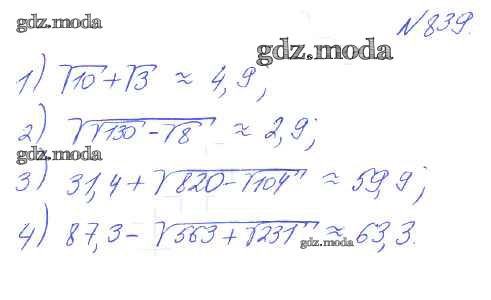 gdz.moda
№839.
gdz.moda
1) √10 + √3 ≈ 4,9;
2) √(√130 - √8) ≈ 2,9;
gdz.moda
3) 31,4 + √(820 - √104) ≈ 59,9;
4) 87,3 - √(563 + √231) ≈ 63,3.
gdz.moda